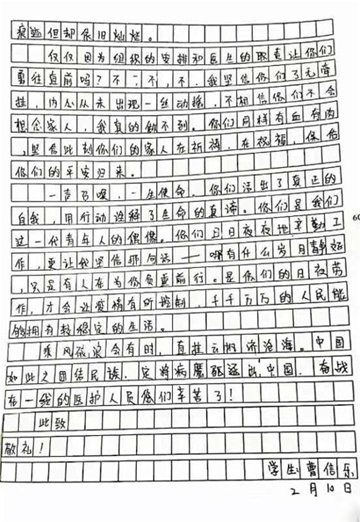 疲惫但却依旧灿烂。
仅仅因为组织的安排和医生的职责让你们
勇往直前吗?不,不,不,我坚信你们了无牵
挂,内心从未出现一丝动摇,不相信你们不会
想念家人,我真的做不到。你们同样有血有肉
,坚信此刻你们的家人在祈祷,在祝福,保佑
你们的平安归来。
一声召唤,一生使命,你们活出了真正的
自我,用行动诠释了生命的真谛。你们是我们
这一代青年人的偶像。你们日日夜夜地辛勤工
作,更让我坚信那句话——哪有什么岁月静好
,只是有人在为你负重前行。是你们的日夜劳
作,才会让疫情有所控制,千千万万的人民能
够拥有较稳定的生活。
乘风破浪会有时,直挂云帆济沧海。中国
如此之团结民族,定将病魔驱逐出中国。奋战
在一线的医护人员您们辛苦了!
此致
敬礼!
学生:曹信乐
2月10日